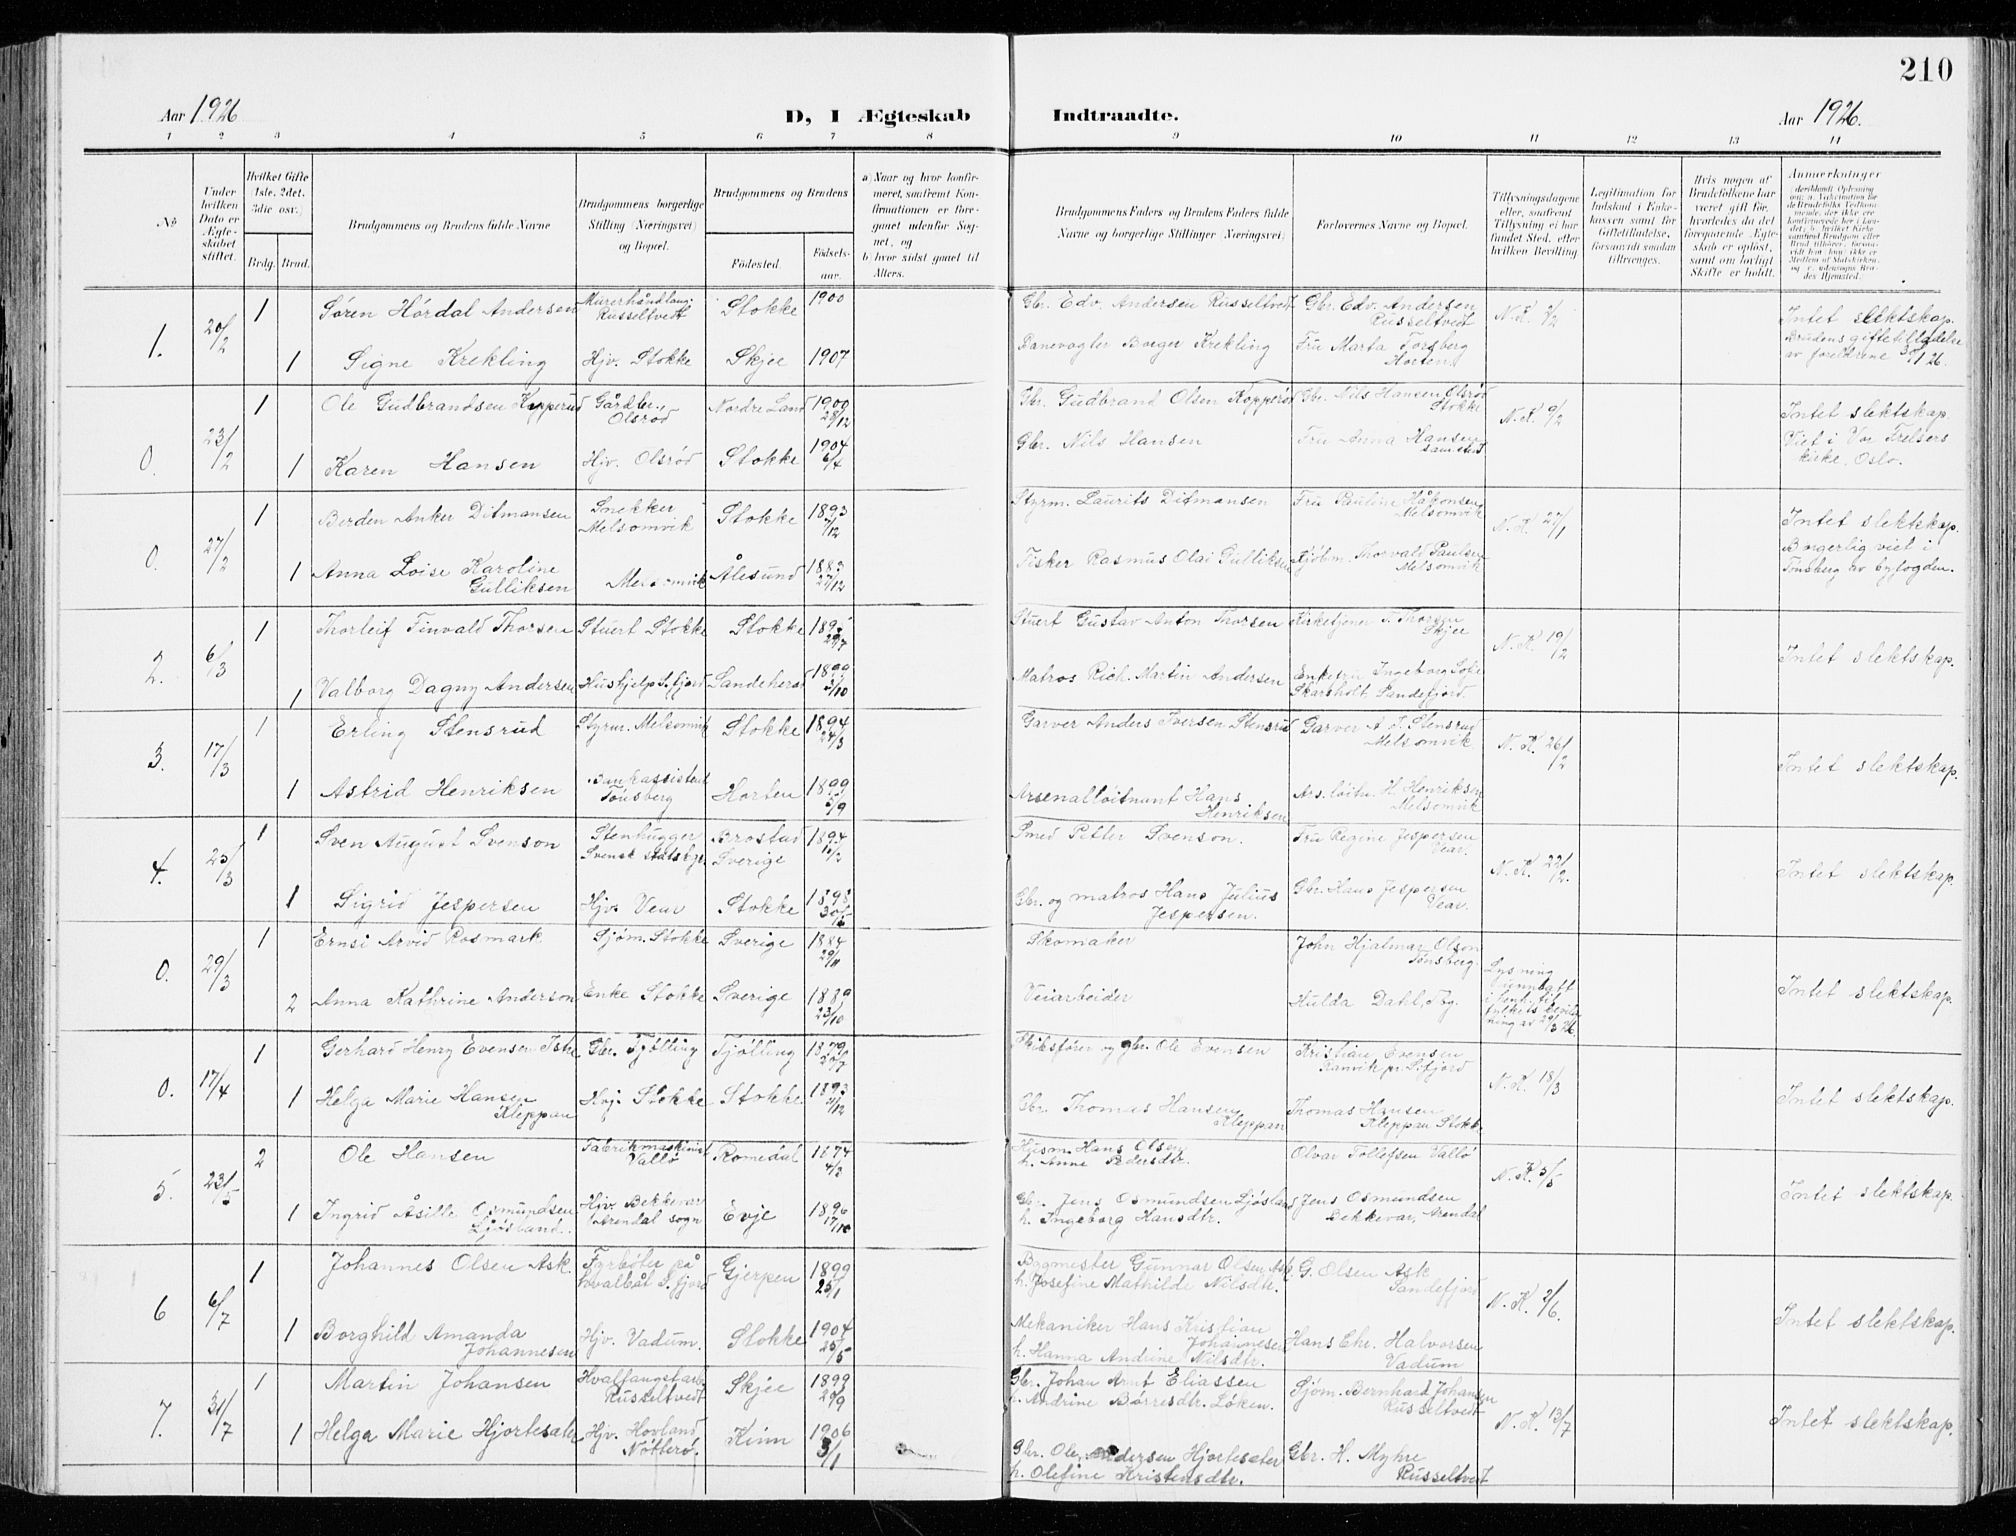 210
Aar 1926
D, I Ægteskab
Indtraadte.
Aar 1926.
1 2 3 4 5 6 7 8 9 10 11 12 13 14
No
Under hvilken Dato er Ægteskabet stiftet.
Hvilket Gifte (1ste, 2det, 3die osv.)
Brdg. Brud.
Brudgommens og Brudens fulde Navne
Brudgommens borgerlige Stilling (Næringsvei) og Bopæl.
Brudgommens og Brudens
Fødested.
Fødselsaar.
a) Naar og hvor konfirmeret, saafremt Konfirmationen er foregaaet udenfor Sognet, og
b) hvor sidst gaaet til Alters.
Brudgommens Faders og Brudens Faders fulde Navne og borgerlige Stillinger (Næringsvei)
Forlovernes Navne og Bopæl.
Tillysningsdagene eller, saafremt Tillysning ei har fundet Sted, efter hvilken Bevilling.
Legitimation for Indskud i Enkekassen samt for Giftetilladelse, forsaavidt saadan tiltrænges.
Hvis nogen af Brudefolkene har været gift før, hvorledes da det foregaaende Ægteskab er opløst, samt om lovligt Skifte er holdt.
Anmerkninger
1. 20/2 1 Søren Hørdal Andersen Murerhåndlang. Russeltvedt Stokke 1900 Gbr. Edv. Andersen Russeltvedt Gbr. Edv. Andersen Russeltvedt N. K. Intet slektskap.
1 Signe Krekling Hjv. Stokke Skjee 1907 Banevogter Borger Krekling Fru Marta Torsberg Horten. Brudens giftetilladelse av foreldrene 30/1 26.
0. 23/2 1 Ole Gudbrandsen Gårdbr. Olsrød Nordre Land 1900 28/12 Gbr. Gudbrand Olsen Gbr. Nils Hansen Olsrød Stokke N. K. 9/2 Intet slektskap.
1 Karen Hansen Hjv. Olsrød Stokke 1904 6/4 Gbr. Nils Hansen Fru Anna Hansen samsteds Viet i Vor Frelsers kirke, Oslo.
0. 27/2 1 Berden Anker Ditmansen Snekker Melsomvik Stokke 1893 7/12 Styrm. Laurits Ditmansen Fru Pauline Håkonsen Melsomvik N. K. 27/1 Intet slektskap.
1 Anna Loise Karoline Gulliksen Melsomvik Ålesund 1883 27/12 Fisker Rasmus Olai Gulliksen Thorvald Paulsen Melsomvik Borgerlig viet i Tønsberg av byfogden.
2. 6/3 1 Thorleif Finvald Thorsen Stuert Stokke Stokke Stuert Gustav Anton Thorsen Kirketjener T. Thorsen Skjee N. K. 19/2 Intet slektskap.
1 Valborg Dagny Andersen Hushjelp S.fjord Sandeherad 1899 3/10 Matros Rich. Martin Andersen Enkefru Ingeborg Sofie Skarsholt Sandefjord.
3. 17/3 1 Erling Stensrud Styrm. Melsomvik Stokke 1894 24/3 Garver Anders Iversen Stensrud Garver A. I. Stensrud Melsomvik N. K. 26/2 Intet slektskap.
1 Astrid Henriksen Bankassistent Tønsberg Horten 1899 Arsenalløitnant Hans Henriksen Ars.løitn. H. Henriksen Melsomvik
4. 25/3 1 Sven August Svenson Stenhugger Svensk statsbgr. Sverige Smed Petter Svenson. Fru Regine Jespersen Vear. N. K. 22/2. Intet slektskap.
1 Sigrid Jespersen Hjv. Vear Stokke 1898 Gbr. og matros Hans Julius Jespersen. Gbr. Hans Jespersen Vear.
0. 29/3 1 Ernst Arvid Rosmark Sjøm. Stokke Sverige 1884 29/11 Skomaker John Hjalmar Olson Tønsberg. Intet slektskap.
2 Anna Kathrine Anderson Enke Stokke Sverige 1889 23/10 Veiarbeider Hulda Dahl, Tbg.
0. 17/4 1 Gerhard Henry Evensen Gbr. Tjølling Tjølling 1879 Ole Evensen Kristian Evensen Ranvik pr. S.fjord N. K. 18/3 Intet slektskap.
1 Helga Marie Hansen Kleppan Stokke Stokke 1893 31/12 Gbr. Thomas Hansen Kleppan Thomas Hansen Kleppan Stokke
5. 23/5 2 Ole Hansen Fabrikmaskinist Vallø Romedal 1874 4/2 Husm. Hans Olsen h. Anne Pedersdtr. Olvar Tollefsen Vallø N. K. 3/5 Intet slektskap.
1 Ingrid Åsille Osmundsen Ljøsland. Hjv. Bekkevar Arendal sogn Evje 1896 Gbr. Jens Osmundsen Ljøsland h. Ingeborg Hansdtr. Jens Osmundsen Bekkevar, Arendal
6 6/7 1 Johannes Olsen Ask. Fyrbøter på hvalbåt S.fjord Gjerpen 1899 Bygmester Gunnar Olsen Ask h. Josefine Mathilde Nilsdtr. G. Olsen Ask Sandefjord N. K. 2/6. Intet slektskap.
1 Borghild Amanda Johannesen Hjv. Vadum. Stokke 1904 25/5 Mekaniker Hans Kristian Johannesen h. Hanna Andrine Nilsdtr. Hans Chr. Halvorsen Vadum
7. 31/7 1 Martin Johansen Hvalfangstarb. Russeltvedt Skjee 1899 29/9 Gbr. Johan Arnt Eliassen h. Andrine Børresdtr. Løken. Sjøm. Bernhard Johansen Russeltvedt N. K. 13/7 Intet slektskap.
1 Helga Marie Hjortesæter Hjv. Hovland Nøtterø. Kinn 1906 3/1 Gbr. Ole Andersen Hjortesæter h. Olefine Kristensdtr. Gbr. H. Myhre Russeltvedt